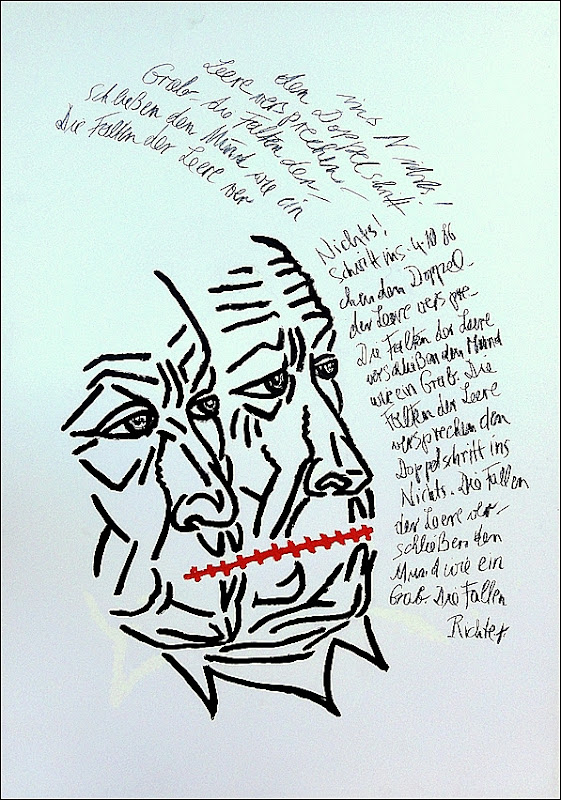 Die Falten der Leere ver
schließen den Mund wie ein
Grab. die Falten der-
Leere versprechen-
den Doppelschritt
ins Nichts!
Nichts!
Schritt ins. 4.10 86
chen den Doppel-
der Leere verspre-
Die Falten der Leere
verschließen den Mund
wie ein Grab. Die
Falten der Leere
versprechen den
Doppelschritt ins
Nichts. Die Fallen
der Leere ver-
schließen den
Mund wie ein
Grab. Die Fallen
Richter